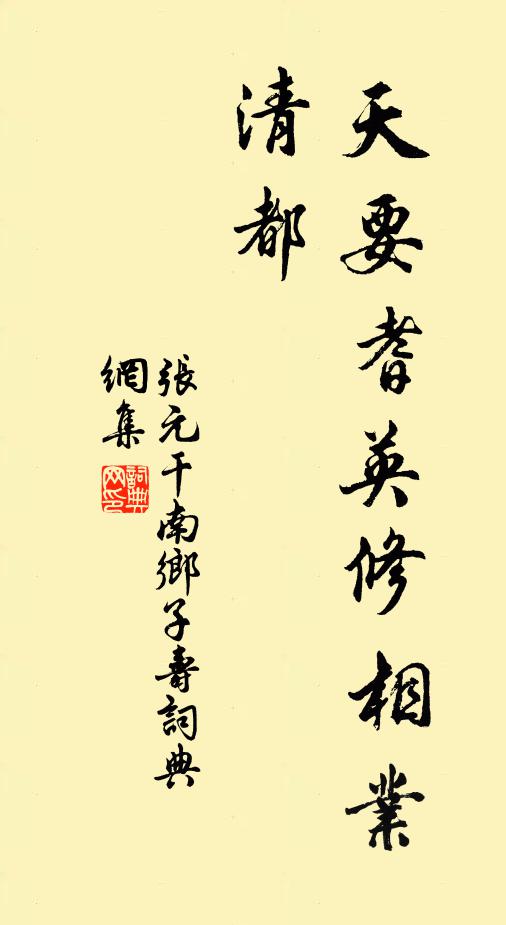 天要耆英修相業
清都
張元干南鄉子壽詞典
網集
詞典
网印